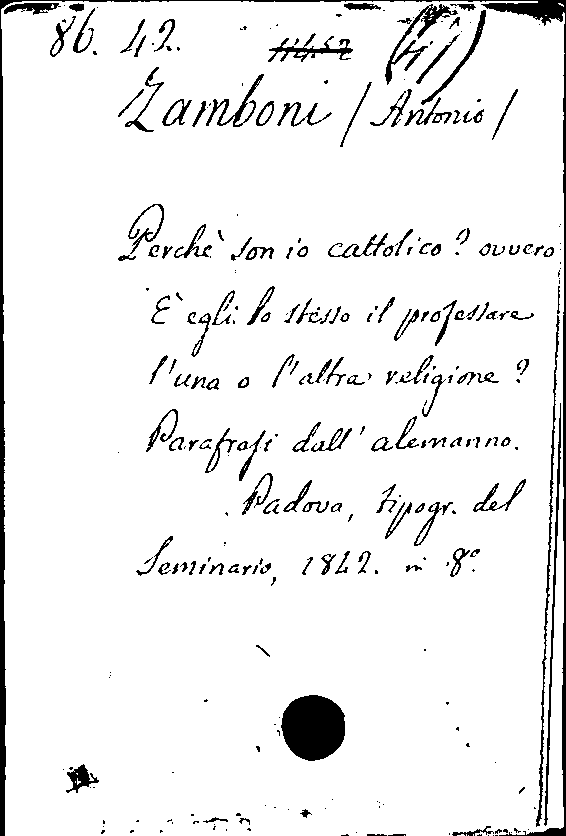 86. 42.
Zamboni (Antonio)
Perchè son io cattolico? ovvero
È egli lo stesso il professare
l'una o l'altra religione?
Parafrasi dall' alemanno.
Padova, tipogr. del
Seminario, 1842. in 8º.